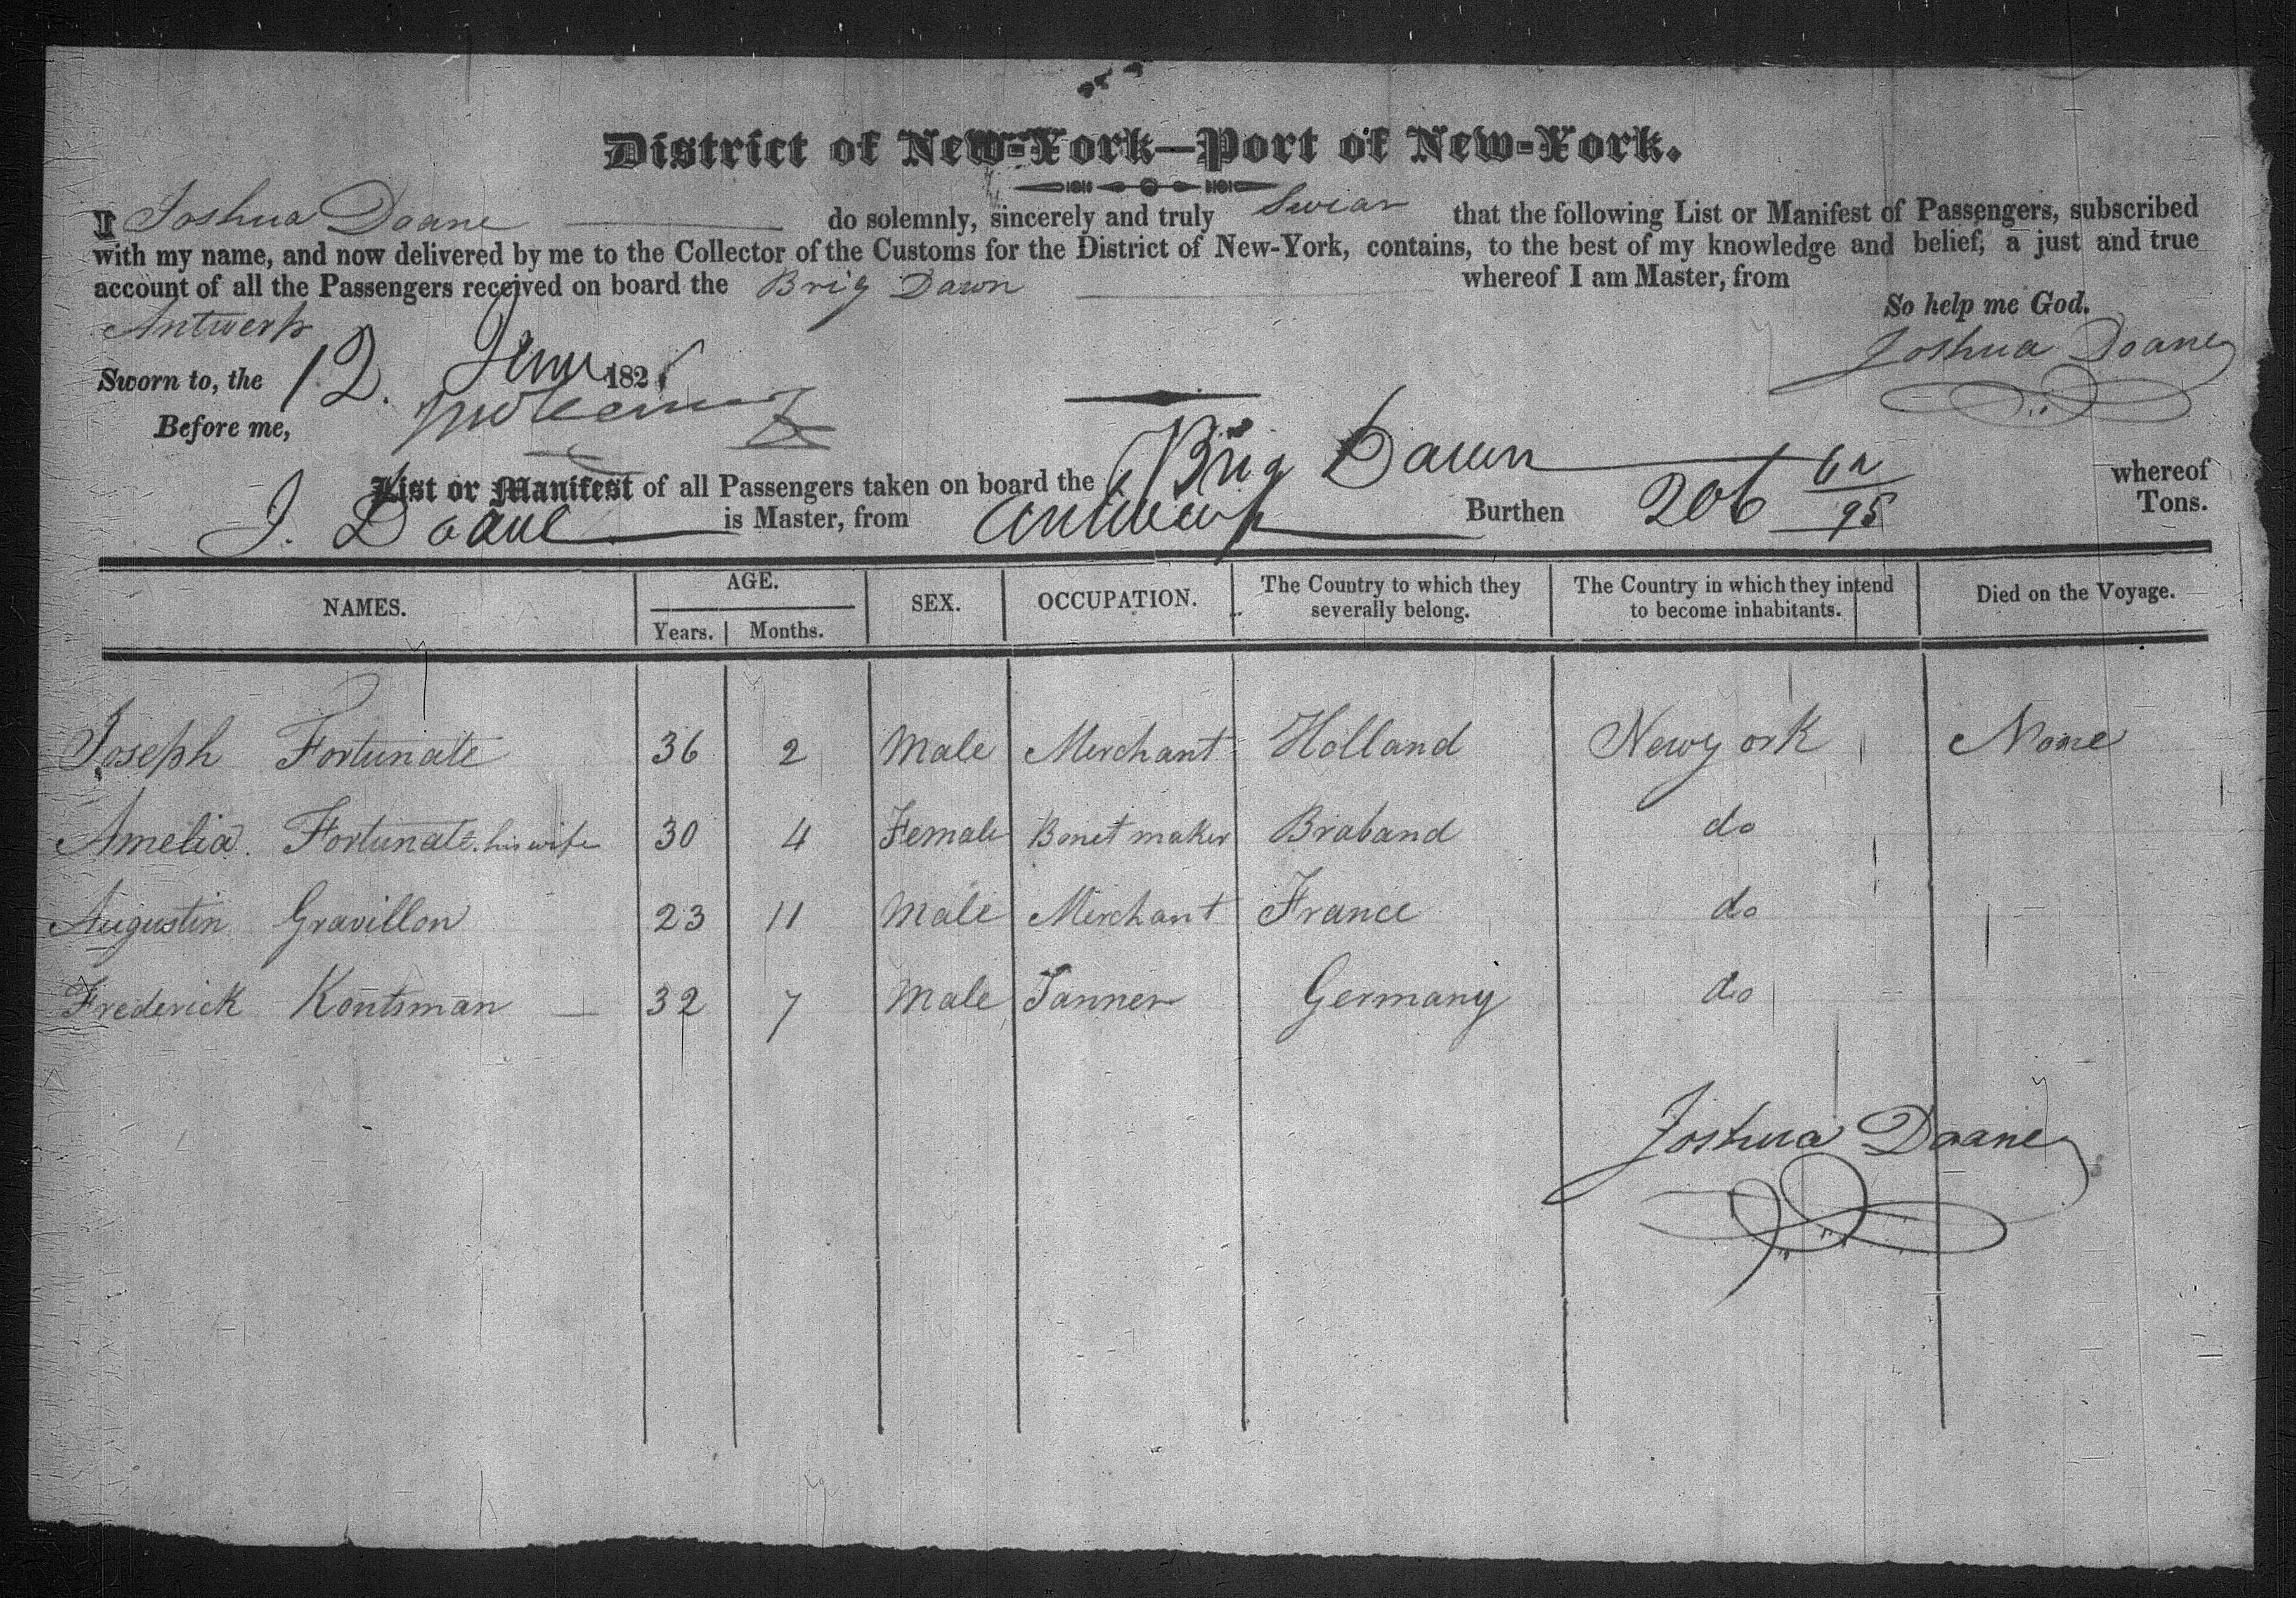 District of New-York—Port of New-York.
I Joshua Doane do solemnly, sincerely and truly Swear that the following List or Manifest of Passengers, subscribed
with my name, and now delivered by me to the Collector of the Customs for the District of New-York, contains, to the best of my knowledge and belief, a just and true
account of all the Passengers received on board the Brig Dawn whereof I am Master, from
Antwerp
So help me God.
Joshua Doane
Sworn to, the 12. June 182
Before me,
List or Manifest of all Passengers taken on board the Brig Dawn whereof
J. Doane is Master, from Antwerp Burthen 206 /95 Tons.
NAMES. AGE. Years. Months. SEX. OCCUPATION. The Country to which they severally belong. The Country in which they intend to become inhabitants. Died on the Voyage.
Joseph Fortunate 36 2 Male Merchant Holland Newyork None
Amelia. Fortunate. his wife 30 4 Female Bonet maker Braband do
Augustin Gravillon 23 11 Male Merchant France do
Frederick Kontsman — 32 7 Male Tanner Germany do
Joshua Doane